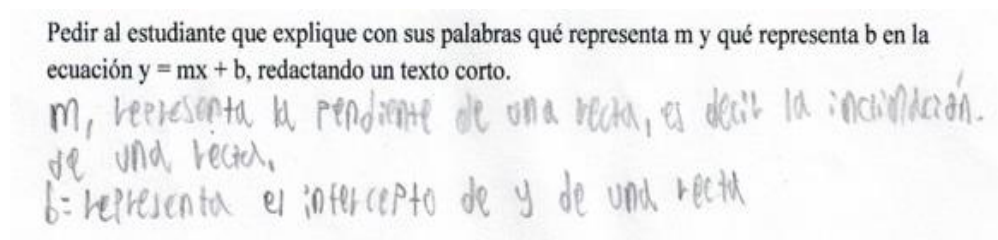 Pedir al estudiante que explique con sus palabras qué representa m y qué representa b en la
ecuación y = mx + b, redactando un texto corto.
m, representa la pendiente de una recta, es decir la inclinación.
de una recta.
b= representa el intercepto de y de una recta